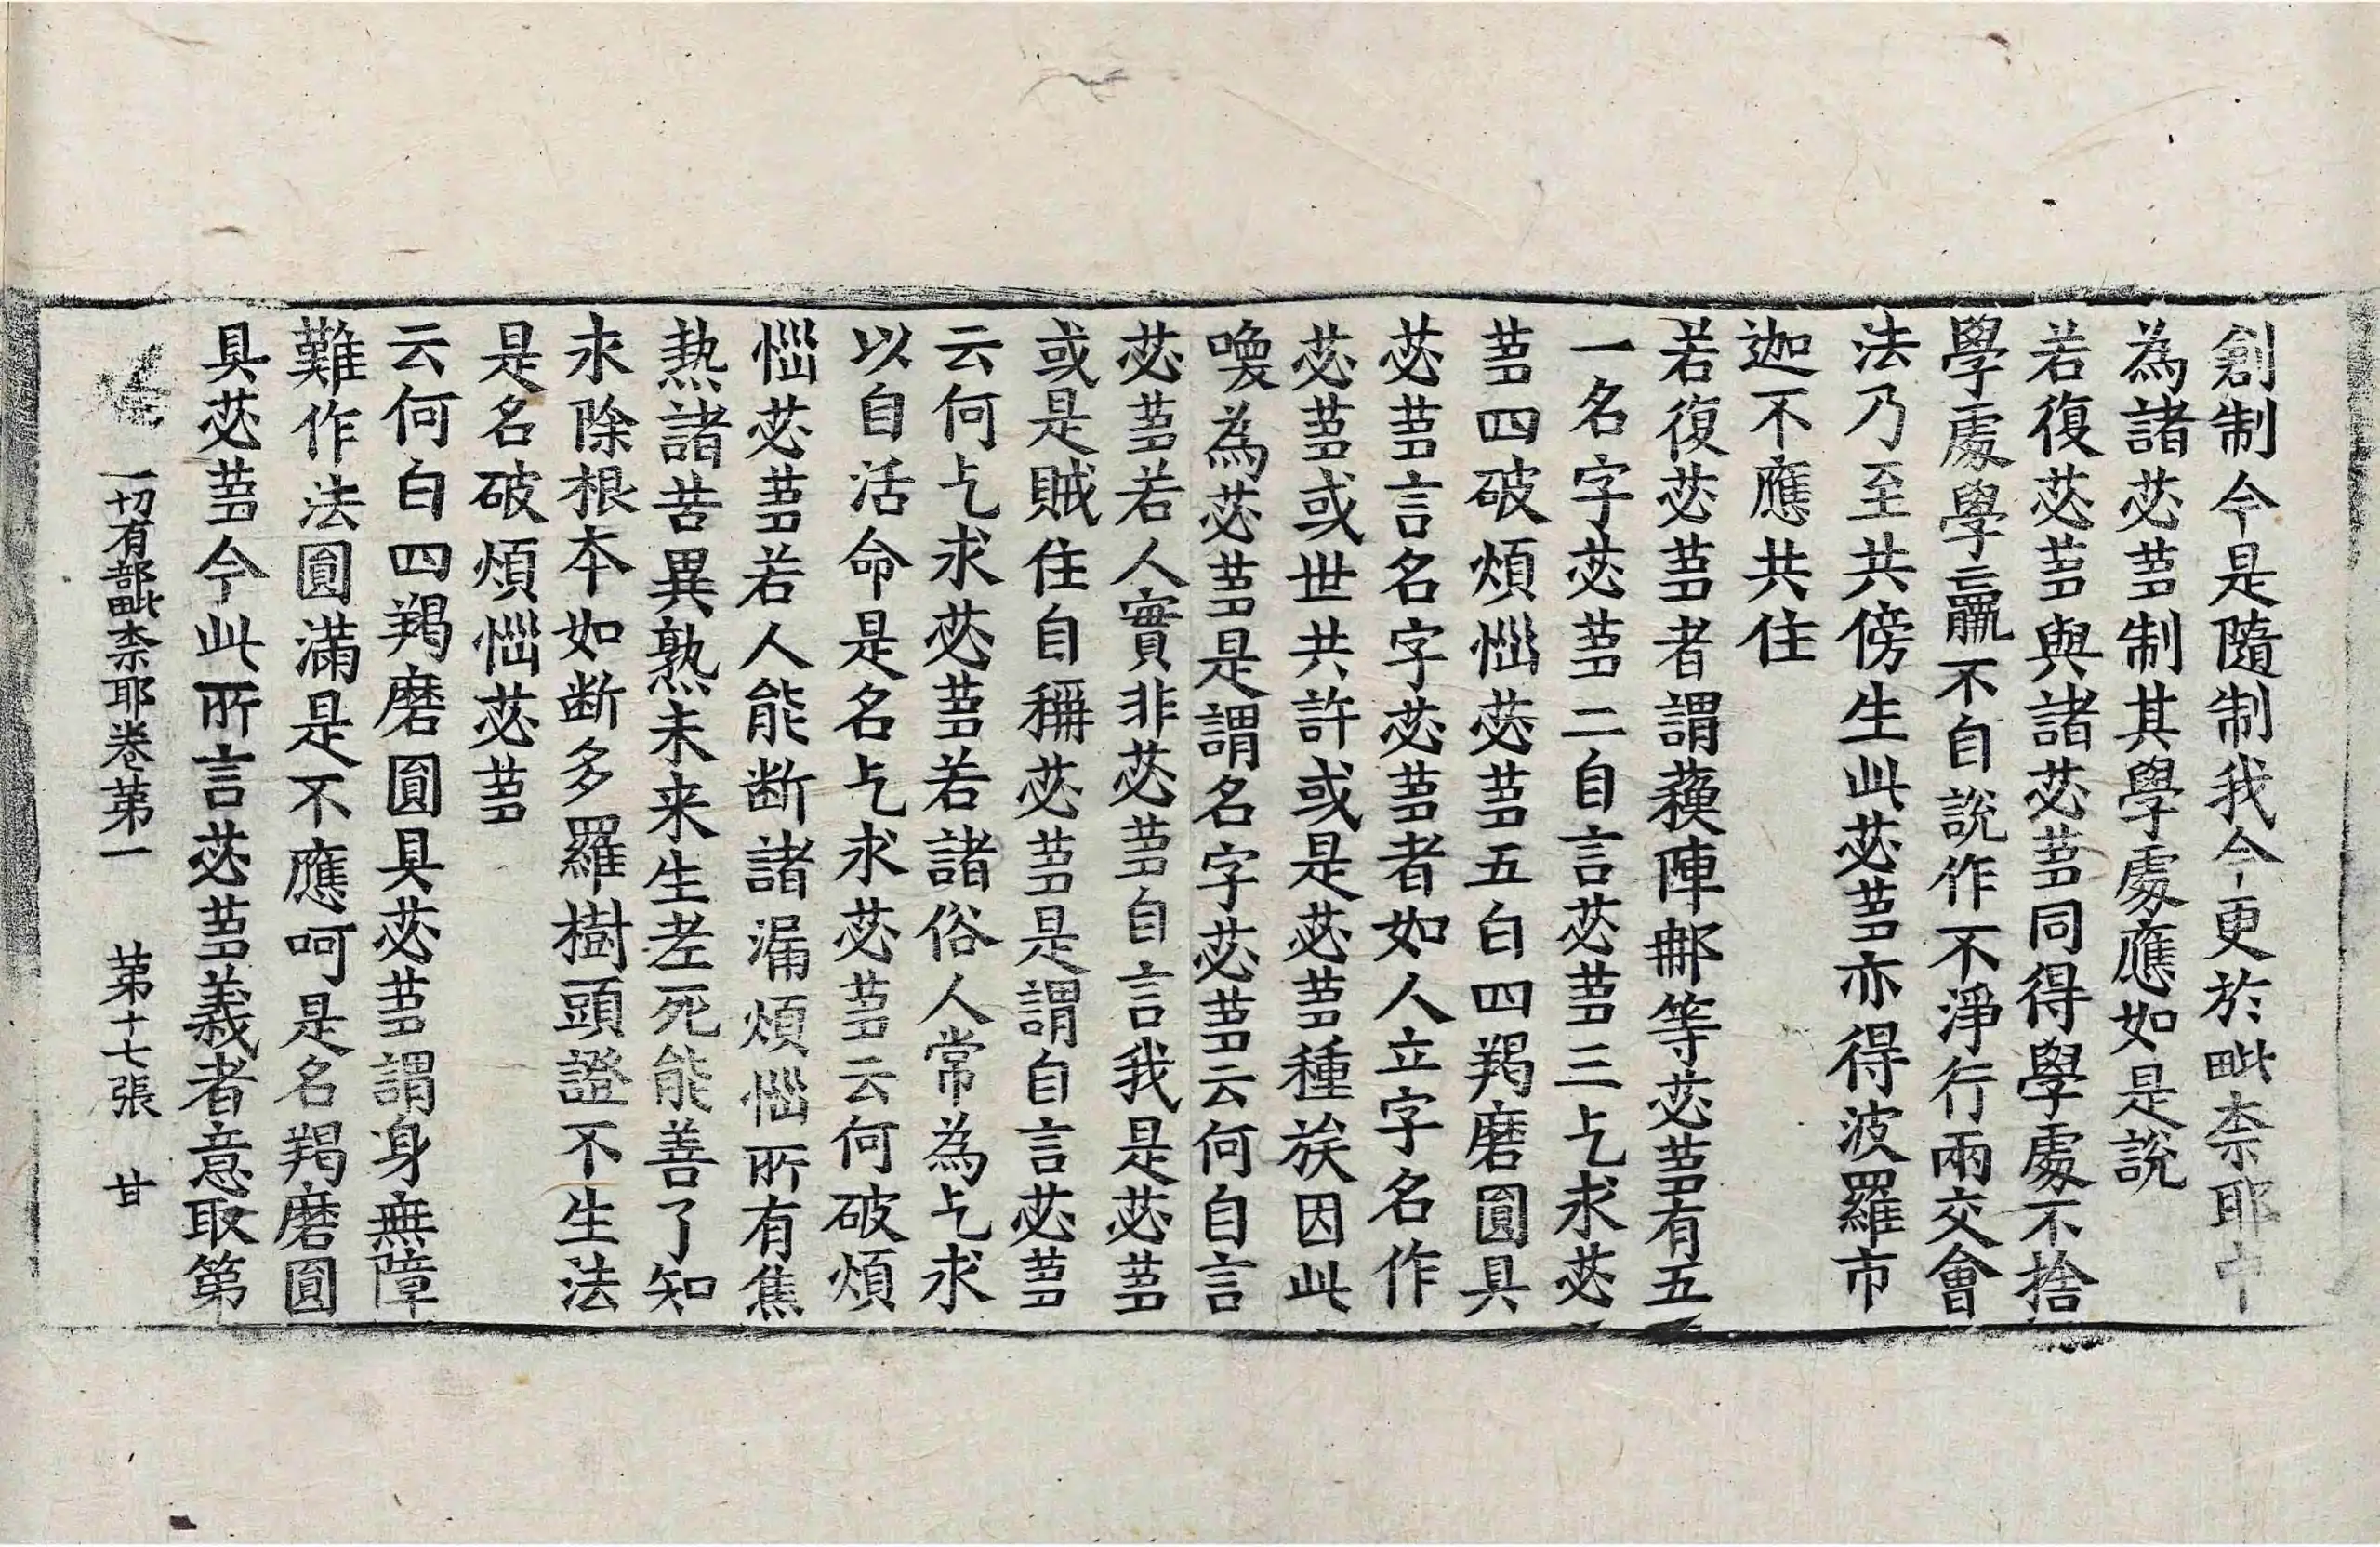 創制今是隨制我今更於毗柰耶中
為諸苾蒭制其學處應如是說
若復苾蒭與諸苾蒭同得學處不捨
學處學羸不自說作不淨行兩交會
法乃至共傍生此苾蒭亦得波羅市
迦不應共住
若復苾蒭者謂蘇陣那等苾蒭有五
一名字苾蒭二自言苾蒭三乞求苾
蒭四破煩惱苾蒭五白四羯磨圓具
苾蒭言名字苾蒭者如人立字名作
苾蒭或世共許或是苾蒭種族因此
喚為苾蒭是謂名字苾蒭云何自言
苾蒭若人實非苾蒭自言我是苾蒭
或是賊住自稱苾蒭是謂自言苾蒭
云何乞求苾蒭若諸俗人常為乞求
以自活命是名乞求苾蒭云何破煩
惱苾蒭若人能断諸漏煩惱所有焦
熱諸苦異熟未来生老死能善了知
永除根本如断多羅樹頭證不生法
是名破煩惱苾蒭
云何白四羯磨圓具苾蒭謂身無障
難作法圓滿是不應呵是名羯磨圓
具苾蒭今此所言苾蒭義者意取第
一切有部毗柰耶卷苐一 苐十七張 甘